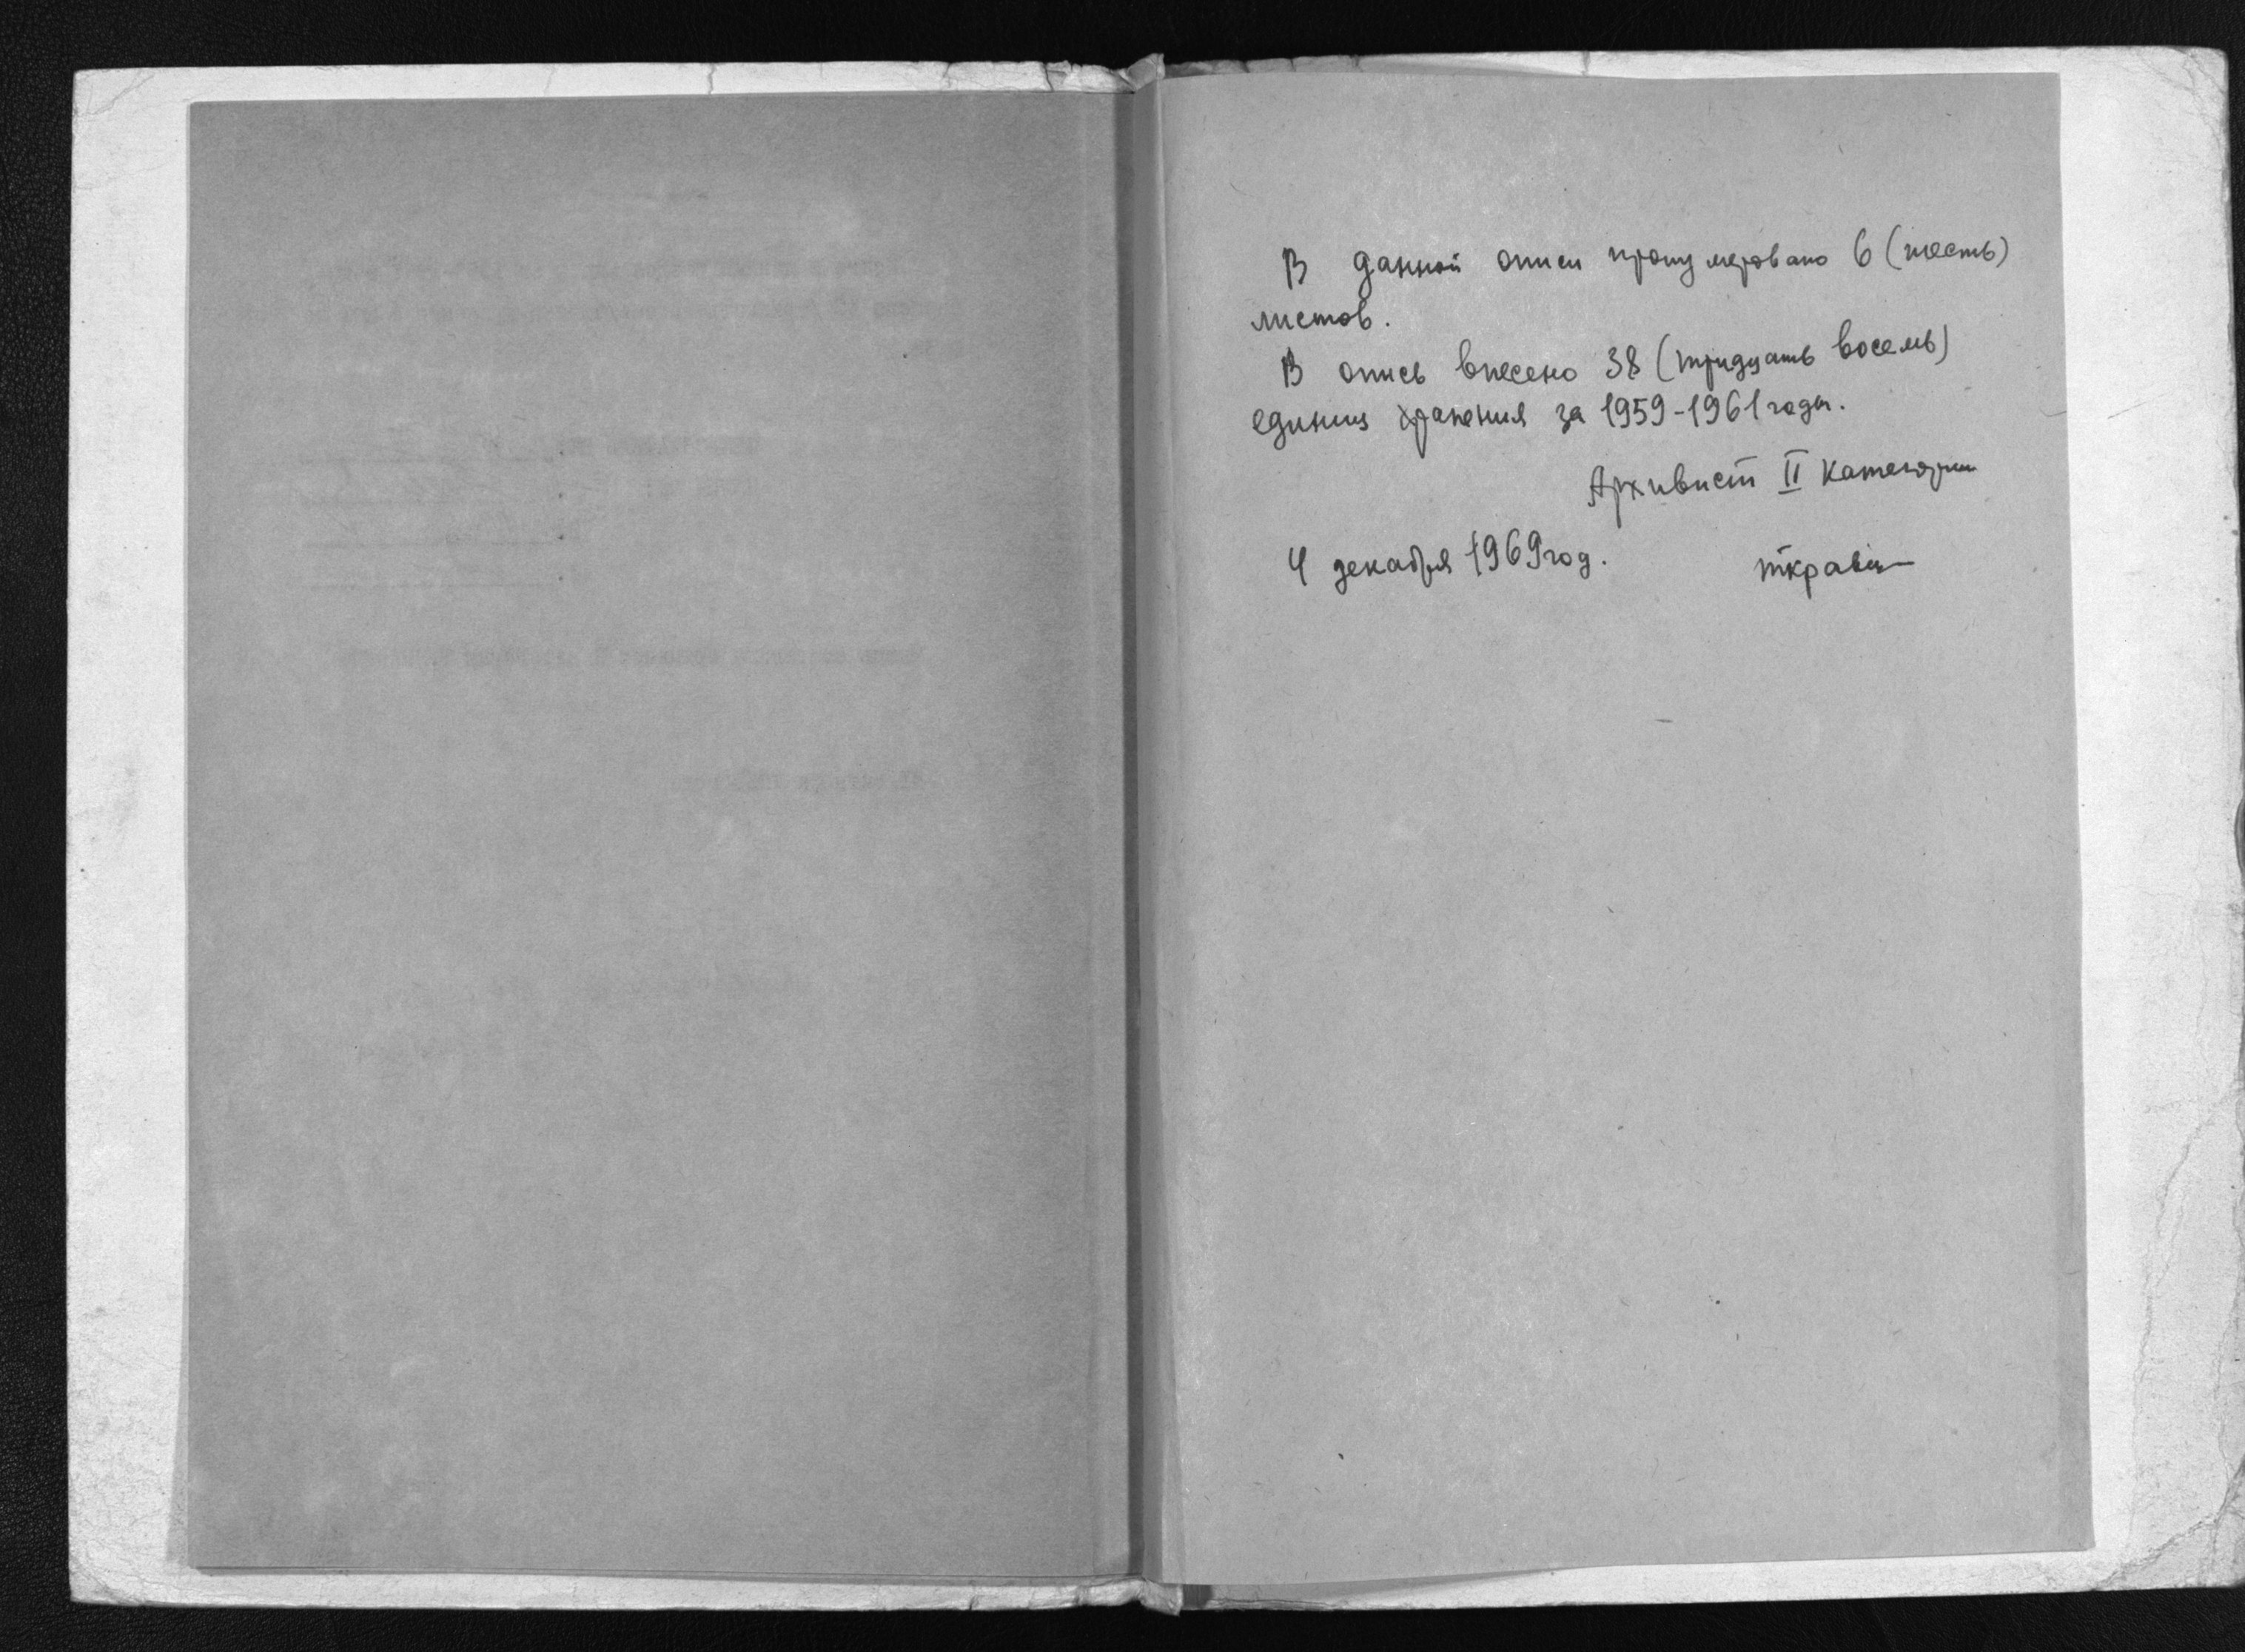 В данной описи пронумеровано 6 (шесть)
листов.
В опись внесено 38 (тридцать восемь)
единиц хранения за 1959-1961 годы.
Архивист II категории
4 декабря 1969 год.